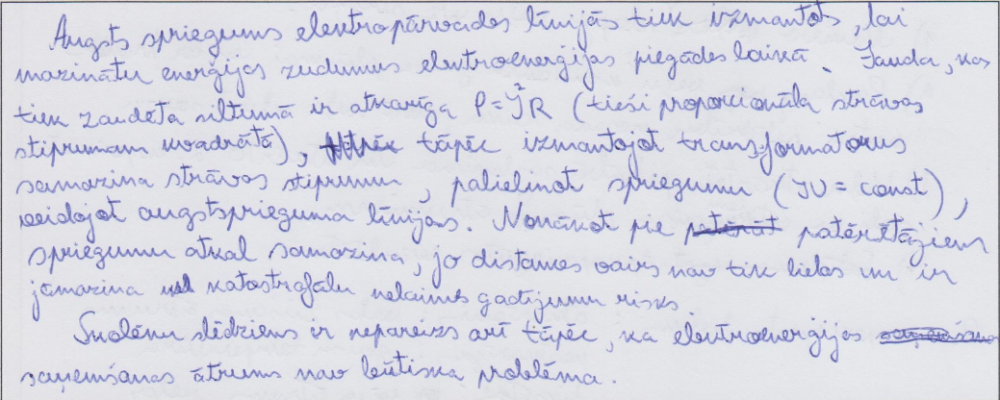 Augsts spriegums elektropārvades līnijās tiek izmantots, lai
mazinātu enerģijas zudumus elektroenerģijas piegādes laikā. Jauda, kas
tiek zaudēta siltumā ir atkarīga P=I²R (tieši proporcionāla strāvas
stiprumam kvadrātā), tāpēc izmantojot transformatorus
samazina strāvas stiprumu, palielinot spriegumu (IU = const),
veidojot augstsprieguma līnijas. Nonākot pie patērētājiem
spriegumu atkal samazina, jo distances vairs nav tik lielas un ir
jāmazina katastrofālu nelaimes gadījumu risks.
Skolēnu slēdziens ir nepareizs arī tāpēc, ka elektroenerģijas
saņemšanas ātrums nav būtiska problēma.